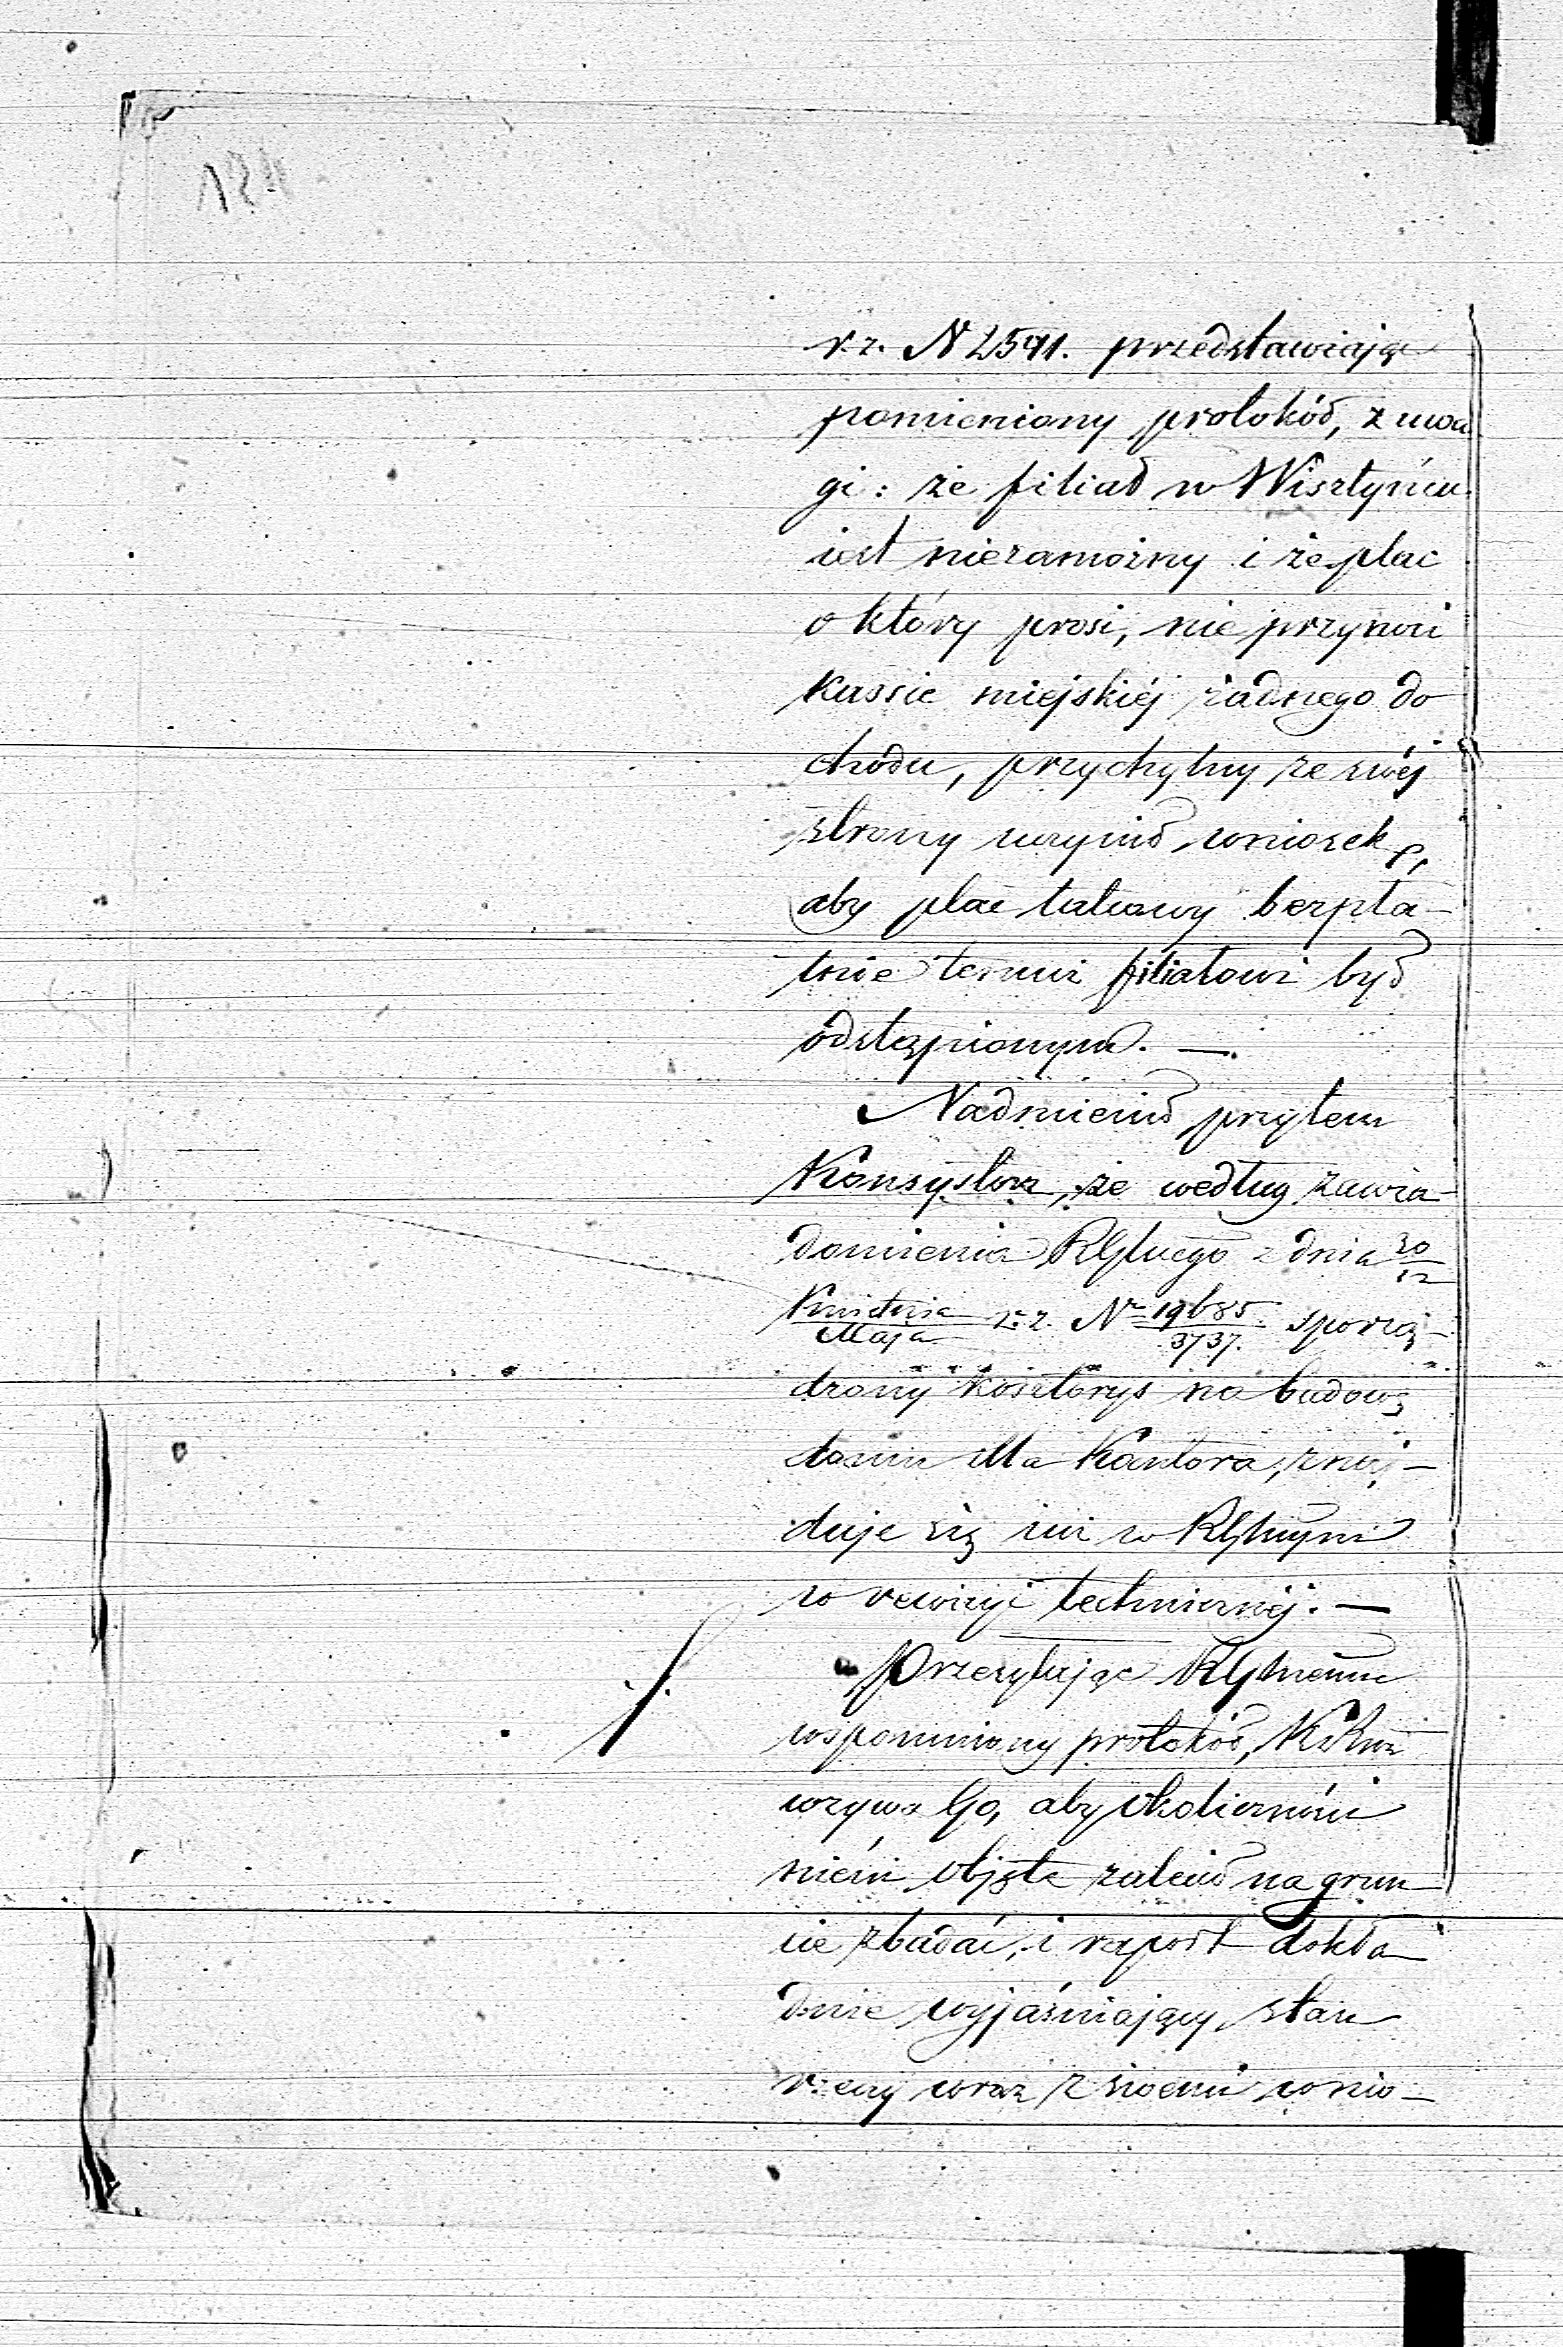 124
r.z. N 2591. przedstawiając
pomieniony protokół, z uwa
gi: że filiał w Wisztyńcu
iest niezamożny i że plac
o który prosi, nie przynosi
kassie miejskiéj żadnego do
chodu, przychylny ze swéj
strony uczynił wniosek,
aby plac takowy bezpła-
tnie temuż filiałowi był
odstąpionym. —.
Nadmienił przytem
Konsystorz, że według zawia
domienia RGlnego z dnia 30/12
Kwietnia/Maja r.z. Nr 19685/3737. sporzą-
dzony kosztorys na budowę
domu dla Kantora, znaj-
duje się iuż w RGlnym
w rewizyi technicznéj. —
Przesyłając RGlnemu
wspomniony protokół,
wzywa Go, aby okoliczności
niém objęte zalecił na grun
cie zbadać, i raport dokła
dnie wyjaśniający stan
rzeczy wraz z swoim wnio-